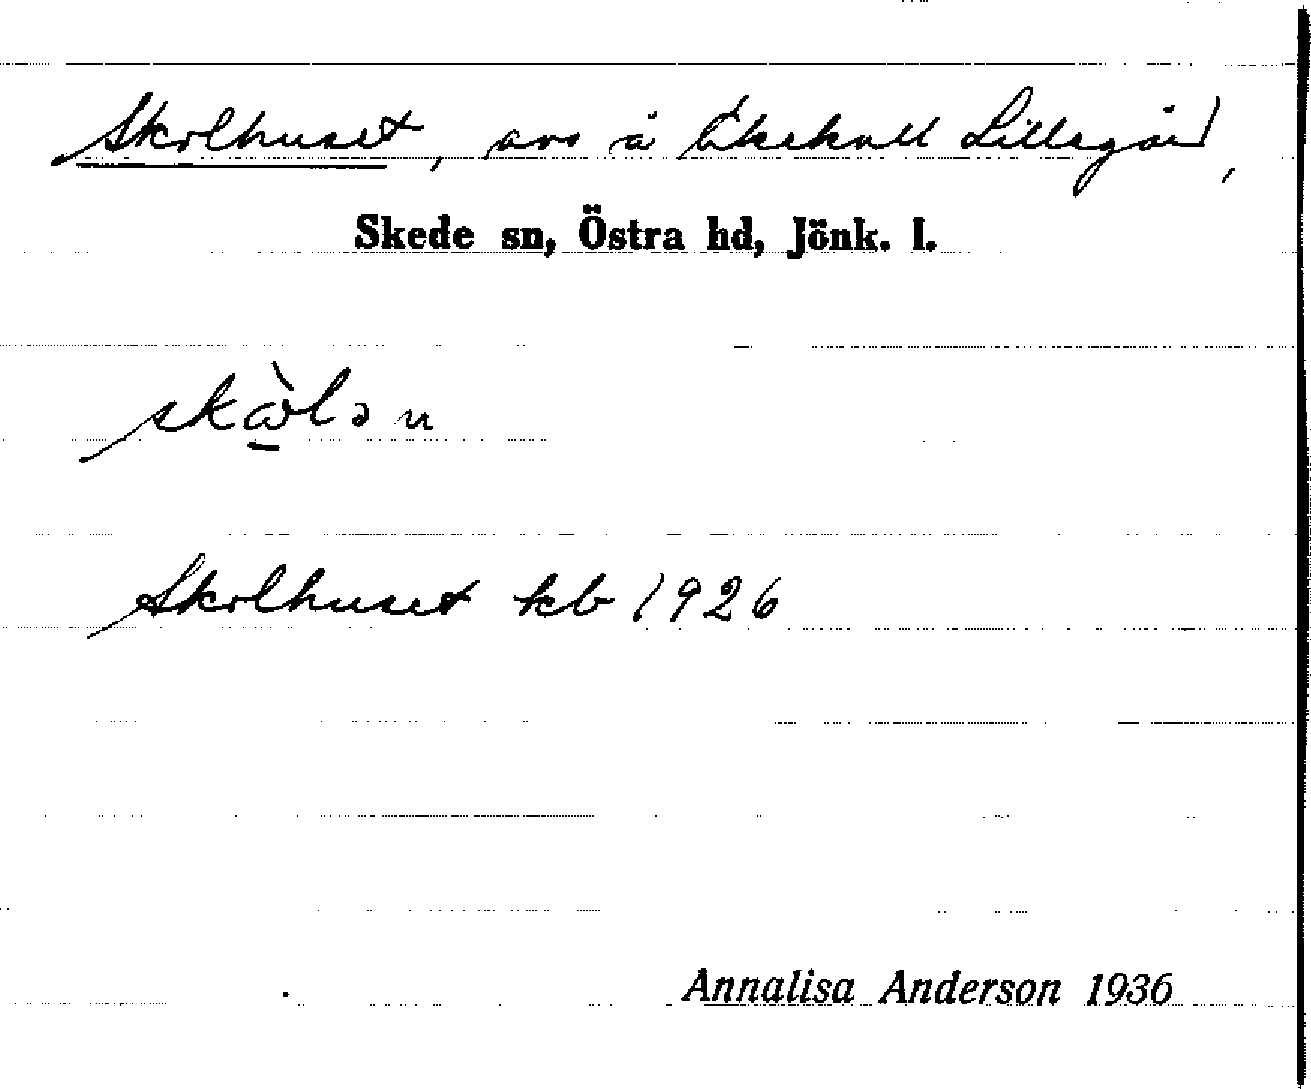 Skolhuset, avs å Ekekull Lillegård,
Skede sn, Östra hd, Jönk. l.
Skolhuset kb 1926
Annalisa Anderson 1936